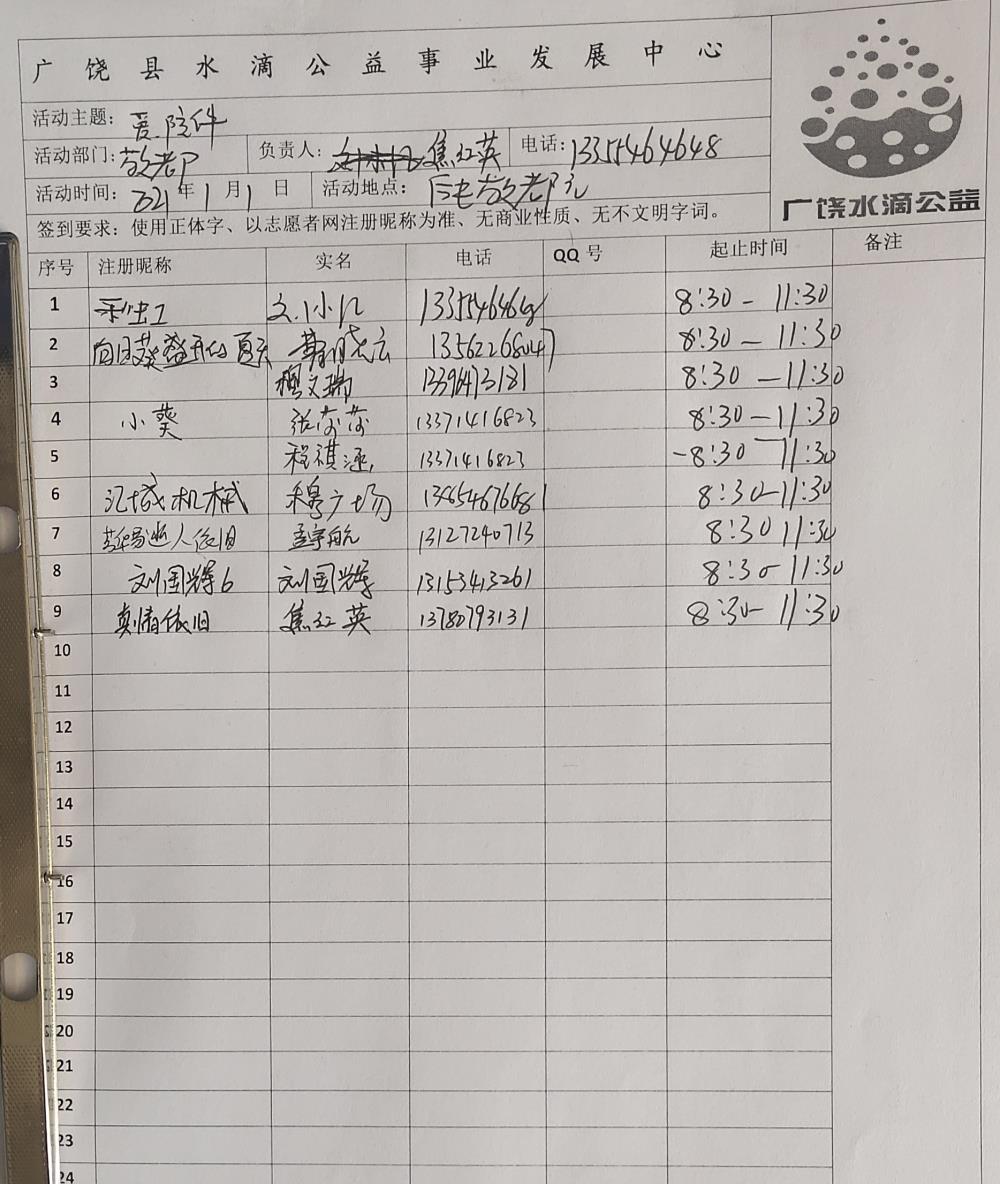 广饶县水滴公益事业发展中心
活动主题：爱陪伴
活动部门：敬老部 负责人：焦红英 电话：13355464648
活动时间：2021年1月1日 活动地点：敬老院
签到要求：使用正体字、以志愿者网注册昵称为准、无商业性质、无不文明字词。
广饶水滴公益
序号 注册昵称 实名 电话 QQ号 起止时间 备注
1 8:30-11:30
2 向日葵盛开的夏天 13562268047 8:30-11:30
3 穆文瑞 13396473181 8:30-11:30
4 小葵 张莎莎 13371416823 8:30-11:30
5 程祺涵 13371416823 -8:30 11:30
6 汇城机械 穆广场 13854676681 8:30-11:30
7 孟宇航 13127240713 8:30 11:30
8 刘国辉6 刘国辉 13153413261 8:30-11:30
9 真情依旧 焦红英 13780793131 8:30-11:30
10
11
12
13
14
15
16
17
18
19
20
21
22
23
24